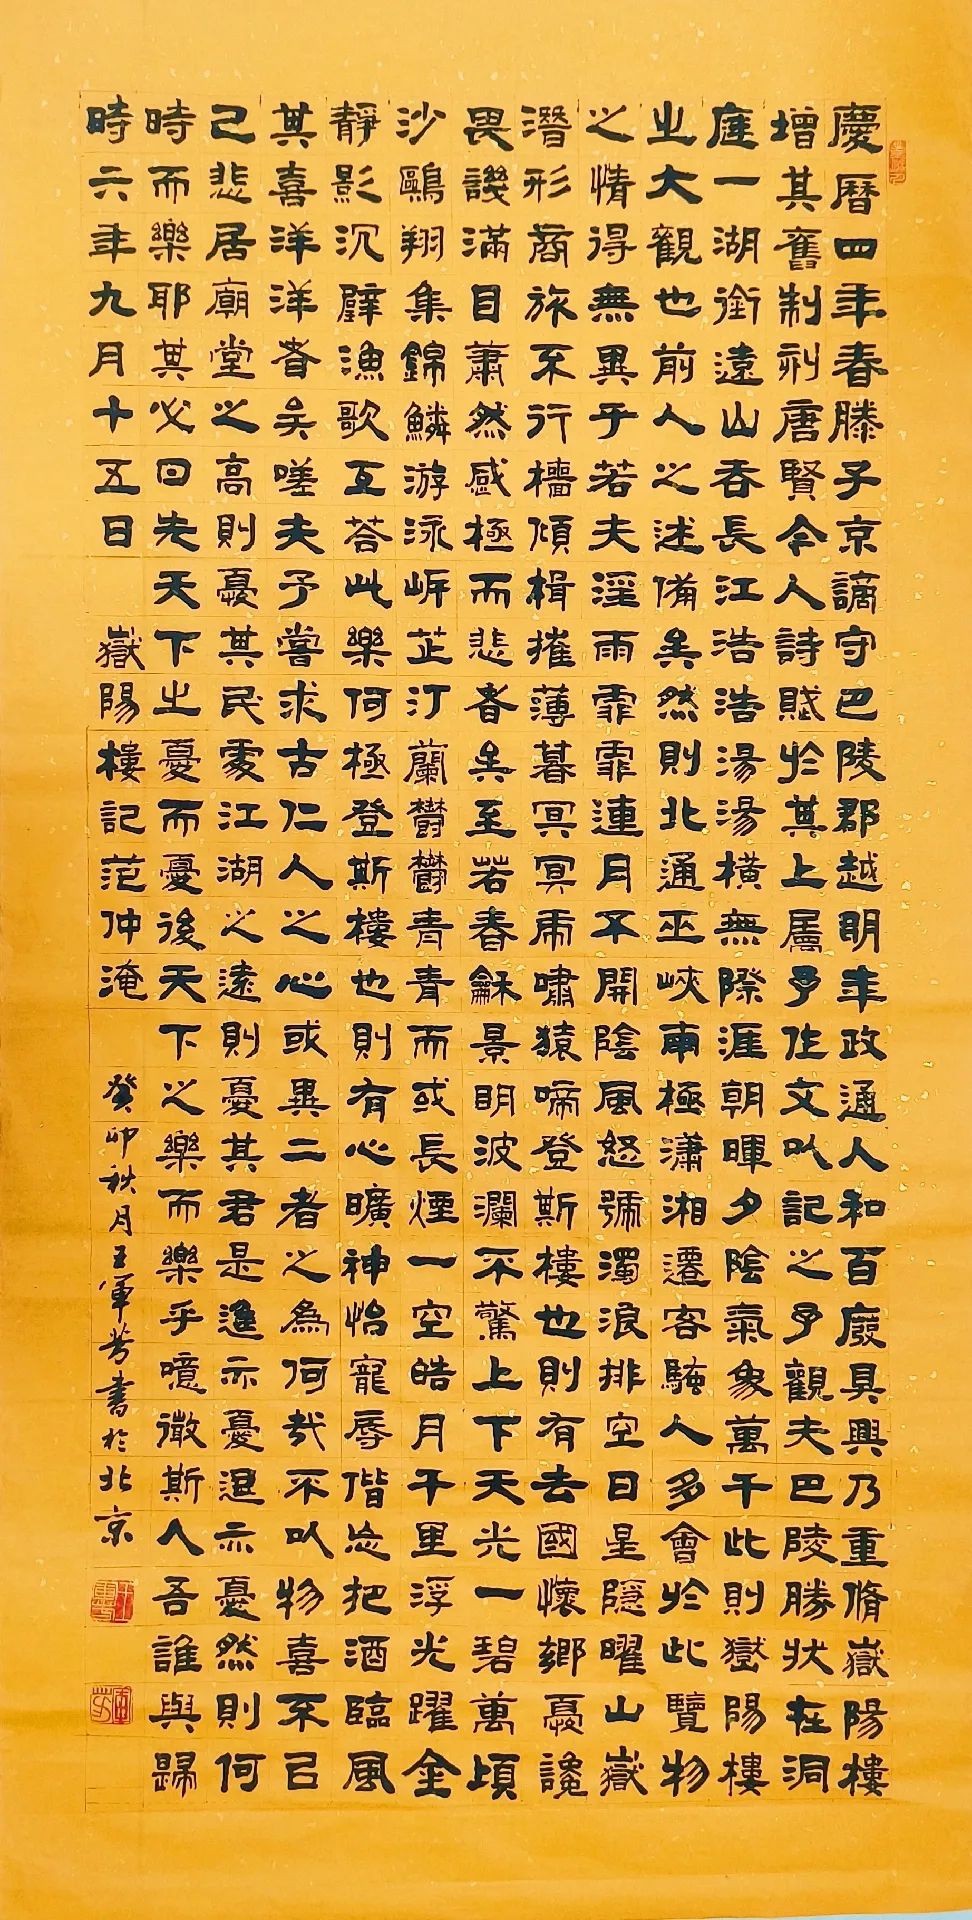 慶曆四年春滕子京謫守巴陵郡越明年政通人和百廢具興乃重脩嶽陽樓
增其舊制刻唐賢今人詩賦於其上屬予作文以記之予觀夫巴陵勝狀在洞
庭一湖銜遠山吞長江浩浩湯湯橫無際涯朝暉夕陰氣象萬千此則嶽陽樓
之大觀也前人之述備矣然則北通巫峽南極瀟湘遷客騷人多會於此覽物
之情得無異乎若夫淫雨霏霏連月不開陰風怒號濁浪排空日星隱曜山嶽
潛形商旅不行檣傾楫摧薄暮冥冥虎嘯猿啼登斯樓也則有去國懷鄉憂讒
畏譏滿目蕭然感極而悲者矣至若春龢景明波瀾不驚上下天光一碧萬頃
沙鷗翔集錦鱗游泳岸芷汀蘭鬱鬱青青而或長煙一空皓月千里浮光躍金
靜影沉璧漁歌互荅此樂何極登斯樓也則有心曠神怡寵辱偕忘把酒臨風
其喜洋洋者矣嗟夫予嘗求古仁人之心或異二者之為何哉不以物喜不㠯
己悲居廟堂之高則憂其民處江湖之遠則憂其君是進亦憂退亦憂然則何
時而樂耶其必曰先天下之憂而憂後天下之樂而樂乎噫微斯人吾誰與歸
時六年九月十五日 嶽陽樓記范仲淹 癸卯秋月王軍芳書於北京